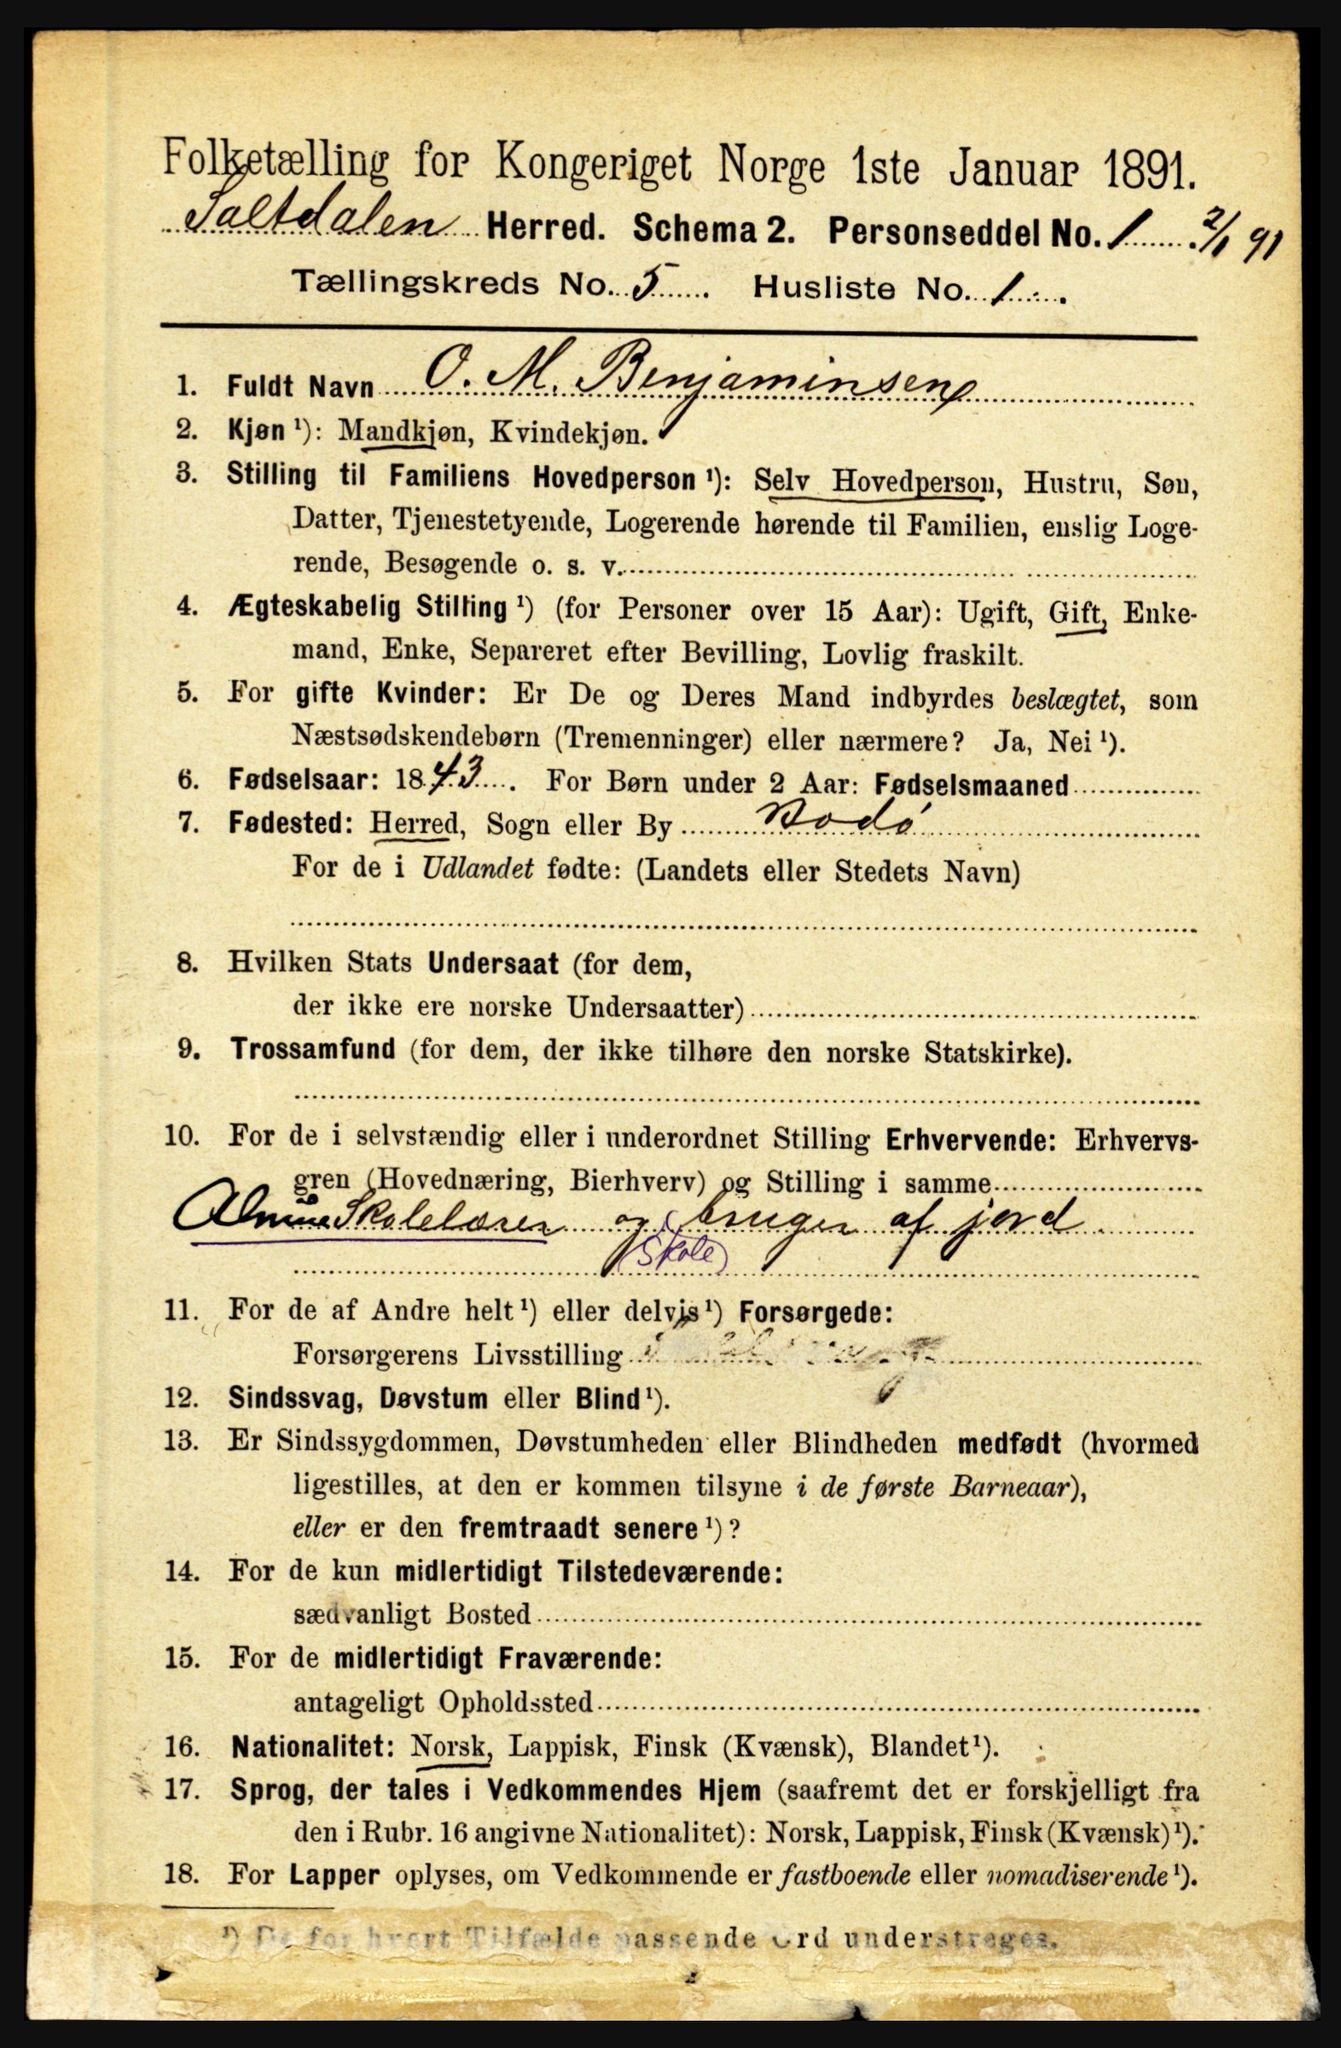 Folketælling for Kongeriget Norge 1ste Januar 1891.
Saltdalen Herred. Schema 2. Personseddel No. 1 2/1 91
Tællingskreds No. 5 Husliste No. 1
1. Fuldt Navn O. M. Benjaminsen
2. Kjøn ¹): Mandkjøn, Kvindekjøn.
3. Stilling til Familiens Hovedperson ¹): Selv Hovedperson, Hustru, Søn,
Datter, Tjenestetyende, Logerende hørende til Familien, enslig Loge-
rende, Besøgende o. s. v.
4. Ægteskabelig Stilling ¹) (for Personer over 15 Aar): Ugift, Gift, Enke-
mand, Enke, Separeret efter Bevilling, Lovlig fraskilt.
5. For gifte Kvinder: Er De og Deres Mand indbyrdes beslægtet, som
Næstsødskendebørn (Tremenninger) eller nærmere? Ja, Nei ¹).
6. Fødselsaar: 1843. For Børn under 2 Aar: Fødselsmaaned
7. Fødested: Herred, Sogn eller By Bodø
For de i Udlandet fødte: (Landets eller Stedets Navn)
8. Hvilken Stats Undersaat (for dem,
der ikke ere norske Undersaatter)
9. Trossamfund (for dem, der ikke tilhøre den norske Statskirke).
10. For de i selvstændig eller i underordnet Stilling Erhvervende: Erhvervs-
gren (Hovednæring, Bierhverv) og Stilling i samme
Skolelærer og bruger af jord
Skole
11. For de af Andre helt ¹) eller delvis ¹) Forsørgede:
Forsørgerens Livsstilling
12. Sindssvag, Døvstum eller Blind ¹).
13. Er Sindssygdommen, Døvstumheden eller Blindheden medfødt (hvormed
ligestilles, at den er kommen tilsyne i de første Barneaar),
eller er den fremtraadt senere ¹)?
14. For de kun midlertidigt Tilstedeværende:
sædvanligt Bosted
15. For de midlertidigt Fraværende:
antageligt Opholdssted
16. Nationalitet: Norsk, Lappisk, Finsk (Kvænsk), Blandet ¹).
17. Sprog, der tales i Vedkommendes Hjem (saafremt det er forskjelligt fra
den i Rubr. 16 angivne Nationalitet): Norsk, Lappisk, Finsk (Kvænsk) ¹).
18. For Lapper oplyses, om Vedkommende er fastboende eller nomadiserende ¹).
¹) De for hvert Tilfælde passende Ord understreges.